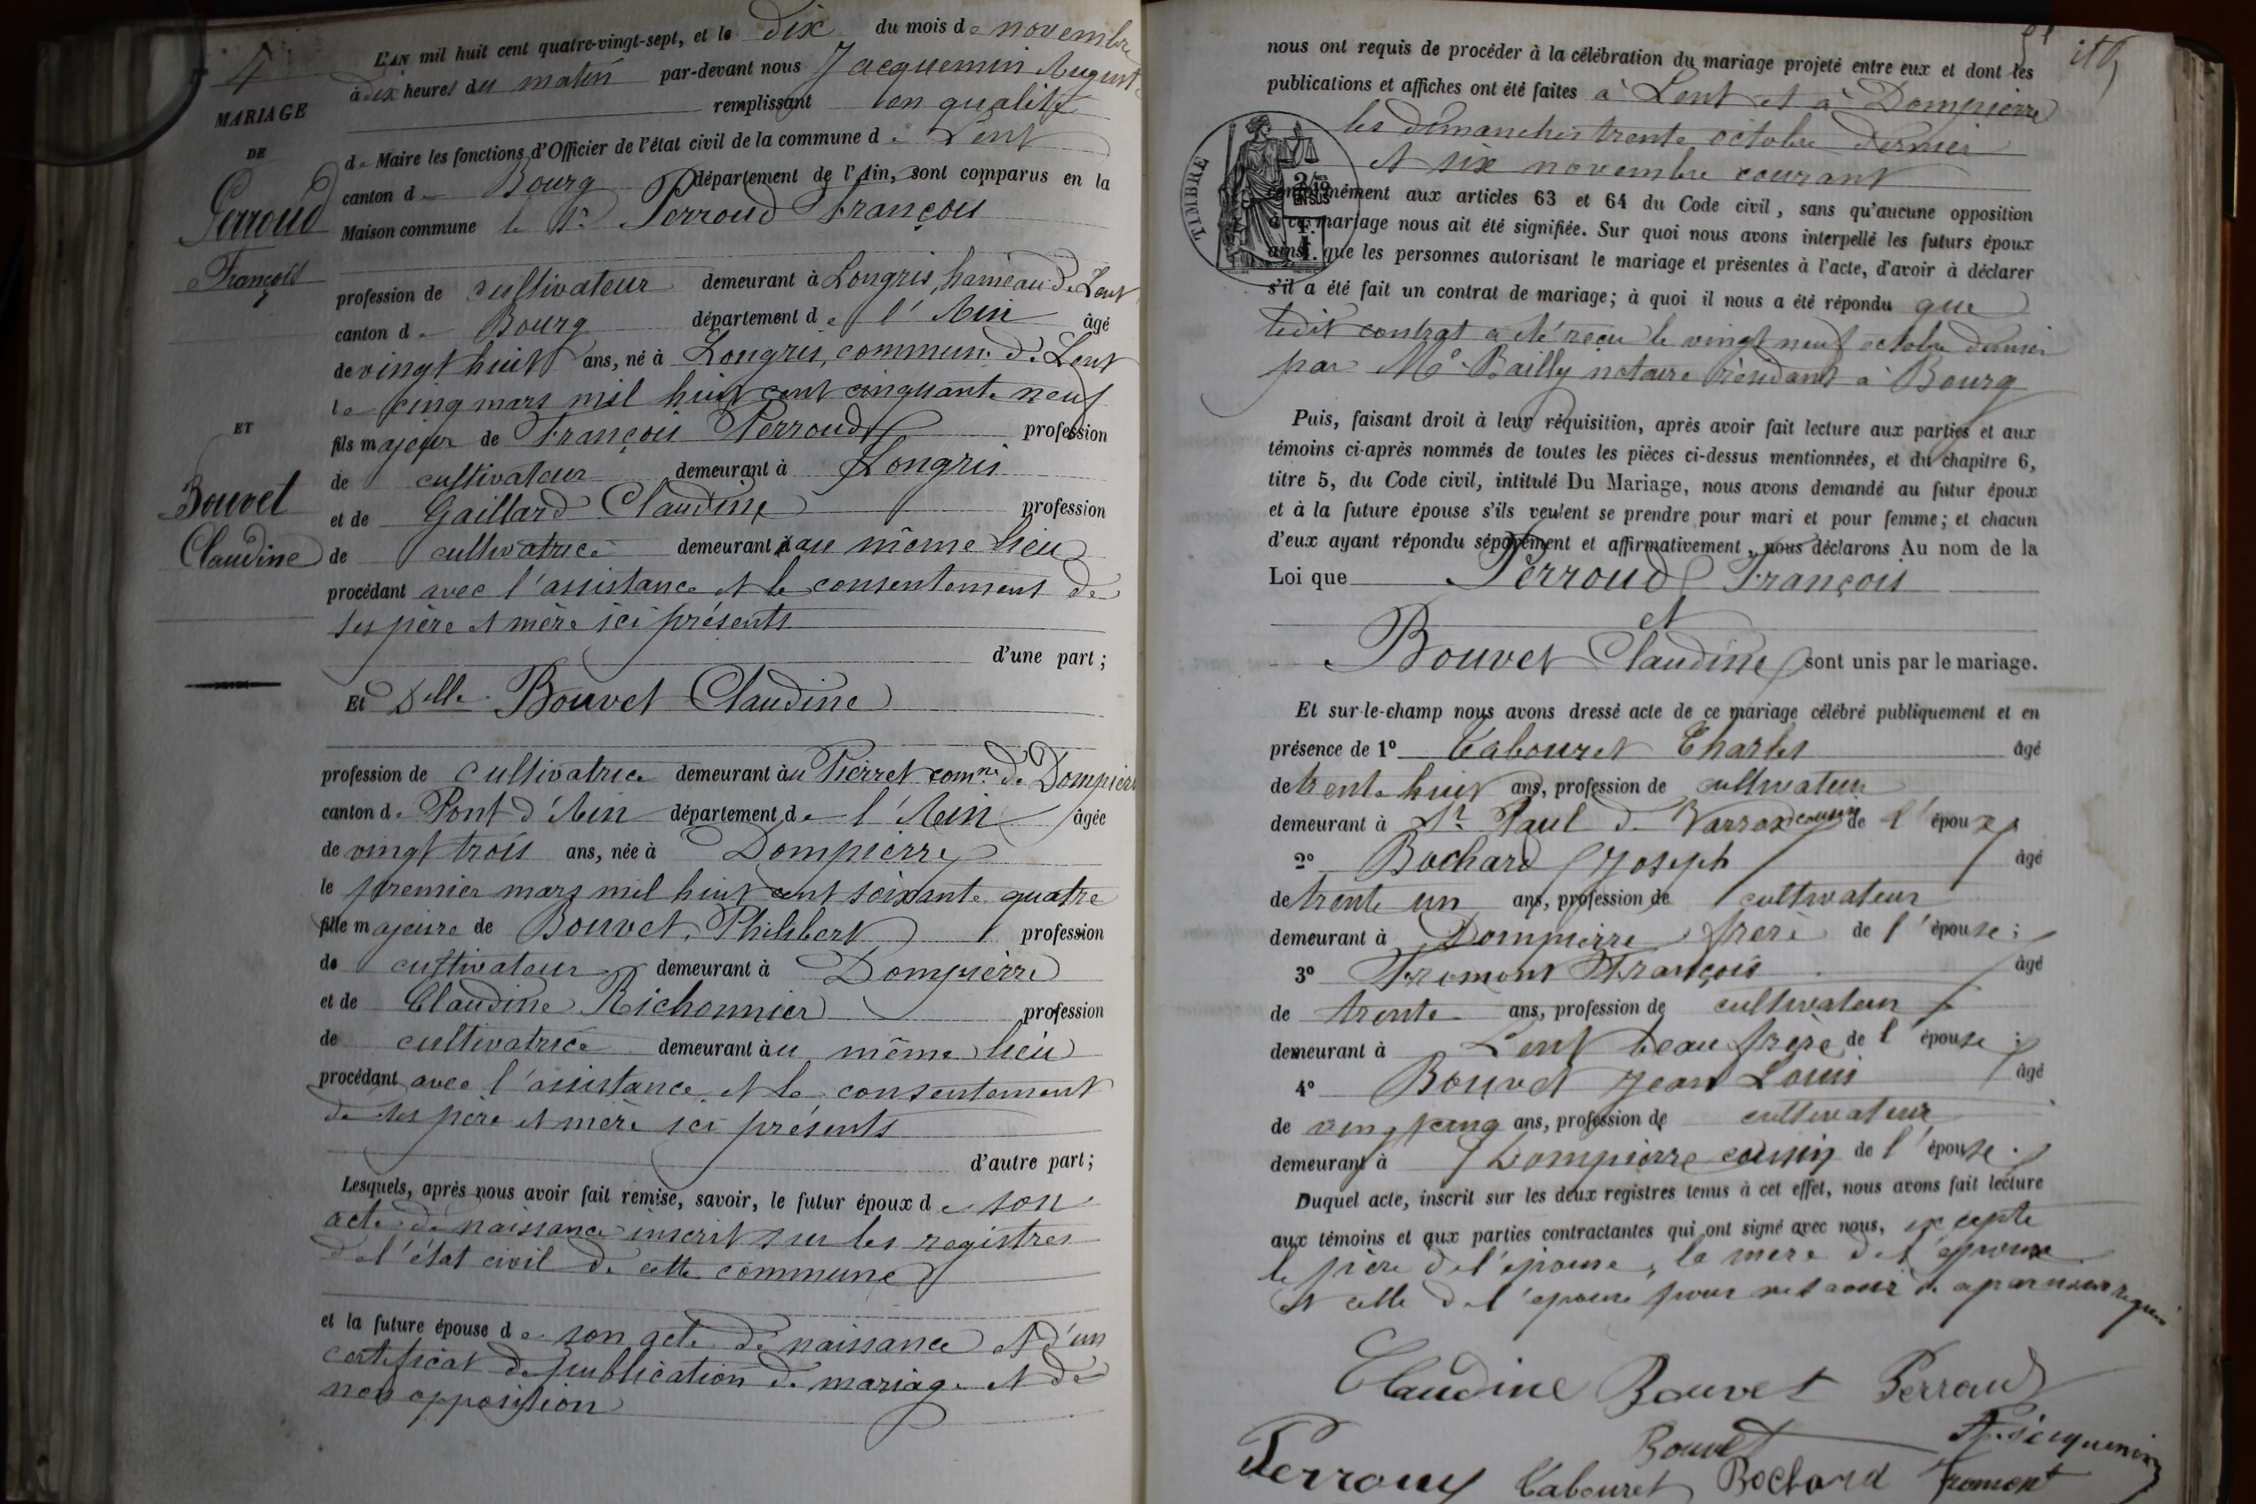 4
MARIAGE
DE
Perroud
François
ET
Bouvet
Claudine
L'AN mil huit cent quatre-vingt-sept, et le dix du mois de novembre
à dix heures du matin par-devant nous Jacquemin August
remplissant en qualité
de Maire les fonctions d'Officier de l'état civil de la commune de Lent
canton de Bourg département de l'Ain, sont comparus en la
Maison commune le Sr Perroud François
profession de cultivateur demeurant à Longris, hameau de Lent
canton de Bourg département de l'Ain âgé
de vingt huit ans, né à Longris, commune de Lent
le cinq mars mil huit cent cinquante neuf
fils majeur de François Perroud profession
de cultivateur demeurant à Longris
et de Gaillard Claudine profession
de cultivatrice demeurant au même lieu
procédant avec l'assistance et le consentement de
ses père et mère ici présents
d'une part ;
Et Delle Bouvet Claudine
profession de cultivatrice demeurant au Pierret comne de Dompierre
canton de Pont d'Ain département de l'Ain âgée
de vingt trois ans, née à Dompierre
le premier mars mil huit cent soixante quatre
fille majeure de Bouvet Philibert profession
de cultivateur demeurant à Dompierre
et de Claudine Richonnier profession
de cultivatrice demeurant au même lieu
procédant avec l'assistance et le consentement
de ses père et mère ici présents
d'autre part ;
Lesquels, après nous avoir fait remise, savoir, le futur époux de son
acte de naissance inscrit sur les registres
de l'état civil de cette commune
et la future épouse de son acte de naissance et d'un
certificat de publication de mariage et de
non opposition
nous ont requis de procéder à la célébration du mariage projeté entre eux et dont les
publications et affiches ont été faites à Lent et à Dompierre
les dimanches trente octobre dernier
et six novembre courant
TIMBRE
2/10
EN SUS
conformément aux articles 63 et 64 du Code civil, sans qu'aucune opposition
à ce mariage nous ait été signifiée. Sur quoi nous avons interpellé les futurs époux
ainsi que les personnes autorisant le mariage et présentes à l'acte, d'avoir à déclarer
s'il a été fait un contrat de mariage; à quoi il nous a été répondu que
ledit contrat a été reçu le vingt neuf octobre dernier
par Me Bailly notaire résidant à Bourg
Puis, faisant droit à leur réquisition, après avoir fait lecture aux parties et aux
témoins ci-après nommés de toutes les pièces ci-dessus mentionnées, et du chapitre 6,
titre 5, du Code civil, intitulé Du Mariage, nous avons demandé au futur époux
et à la future épouse s'ils veulent se prendre pour mari et pour femme; et chacun
d'eux ayant répondu séparément et affirmativement, nous déclarons Au nom de la
Loi que Perroud François
et
Bouvet Claudine sont unis par le mariage.
Et sur-le-champ nous avons dressé acte de ce mariage célébré publiquement et en
présence de 1° Cabouret Charles âgé
de trente huit ans, profession de cultivateur
demeurant à St Paul de Varrax cousin de l'époux
2° Bochard Joseph âgé
de trente un ans, profession de cultivateur
demeurant à Dompierre frère de l'épouse ;
3° Fromont François âgé
de trente ans, profession de cultivateur
demeurant à Lent beau frère de l'épouse ;
4° Bouvet Jean Louis âgé
de vingt cinq ans, profession de cultivateur
demeurant à Dompierre cousin de l'épouse.
Duquel acte, inscrit sur les deux registres tenus à cet effet, nous avons fait lecture
aux témoins et aux parties contractantes qui ont signé avec nous, excepté
le père de l'épouse, la mère de l'époux
et celle de l'épouse pour ne savoir de ce requis
Claudine Bouvet Perroud
Bouvet A. Jacquemin
Perroud Cabouret Bochard Fromont